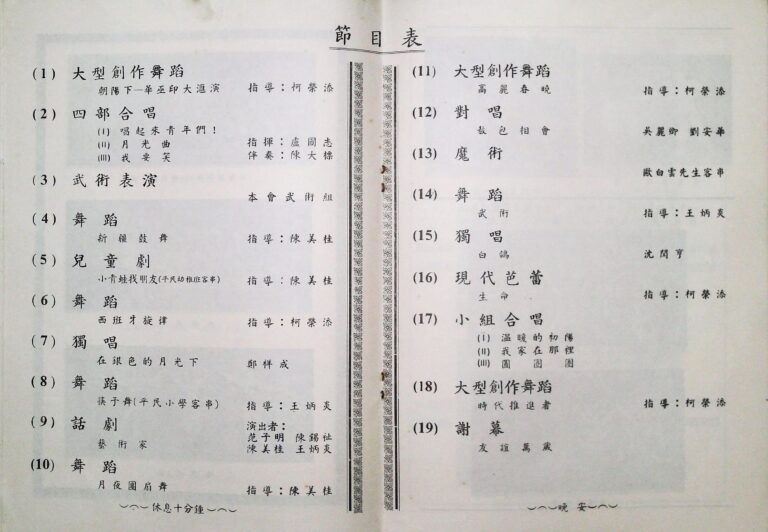 節目表
(1) 大型創作舞蹈
朝陽下—華巫印大滙演 指導：柯榮添
(2) 四部合唱
(I) 唱起來青年們！
(II) 月光曲 指揮：盧國志
(III) 我要笑 伴奏：陳大樑
(3) 武術表演
本會武術組
(4) 舞蹈
新疆鼓舞 指導：陳美桂
(5) 兒童劇
小青蛙找朋友(平民幼稚班客串) 指導：陳美桂
(6) 舞蹈
西班牙旋律 指導：柯榮添
(7) 獨唱
在銀色的月光下 鄭祥成
(8) 舞蹈
筷子舞(平民小學客串) 指導：王炳炎
(9) 話劇 演出者：
藝術家 范子明 陳錫祉
陳美桂 王炳炎
(10) 舞蹈
月夜團扇舞 指導：陳美桂
休息十分鐘
(11) 大型創作舞蹈
高麗春曉 指導：柯榮添
(12) 對唱
敖包相會 吳麗卿 劉安華
(13) 魔術
歐白雲先生客串
(14) 舞蹈
武術 指導：王炳炎
(15) 獨唱
白鴿 沈閏亨
(16) 現代芭蕾
生命 指導：柯榮添
(17) 小組合唱
(I) 溫暖的初陽
(II) 我家在那裡
(III) 圓圓圓
(18) 大型創作舞蹈
時代推進者 指導：柯榮添
(19) 謝幕
友誼萬歲
晚安